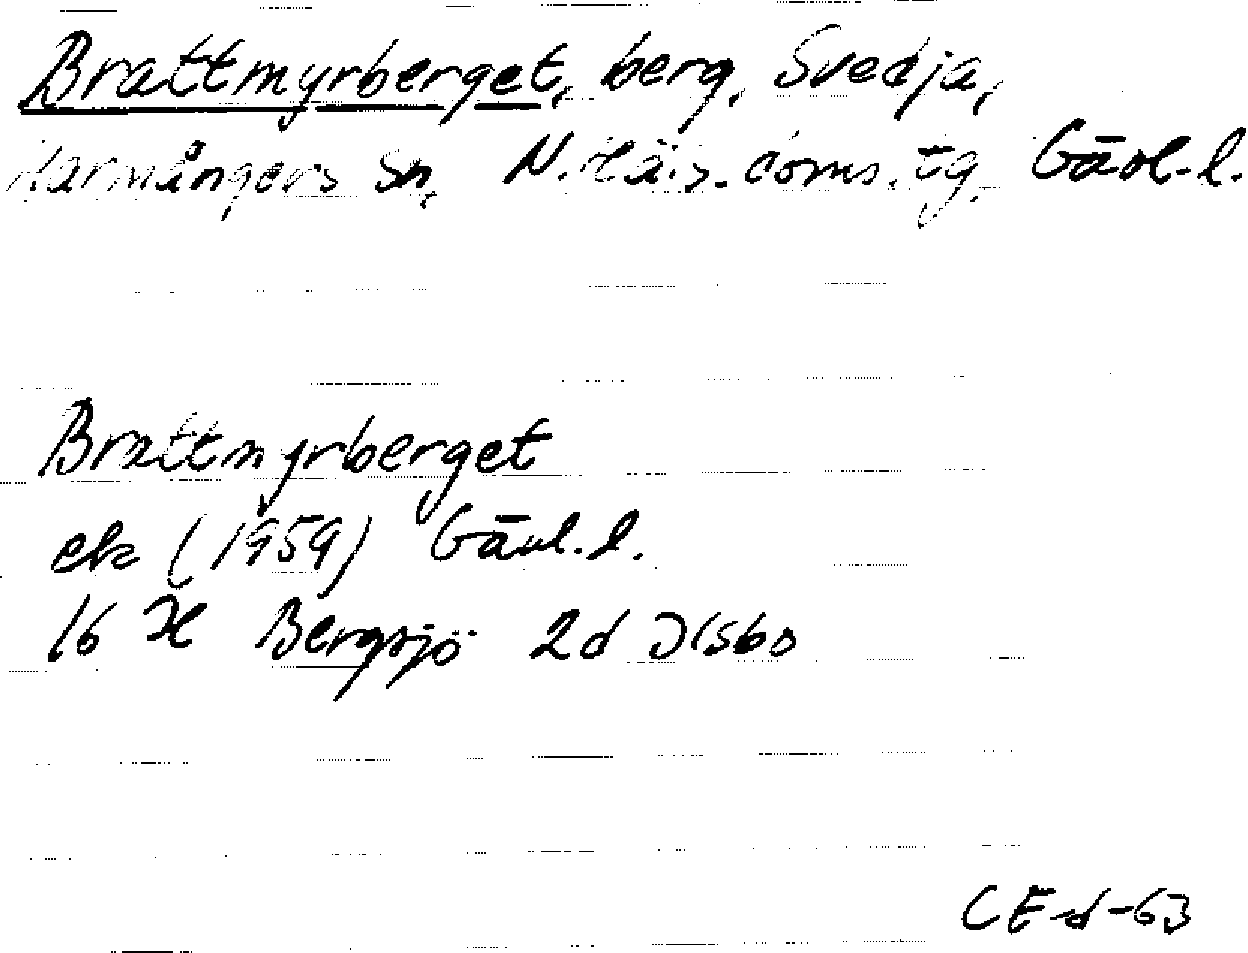 Brattmyrberget, berg, Svedja,
Harmångers Sn, N. Häls. doms. tg. Gävl.l.
Brattmyrberget
ek (1959) Gävl.l.
16 H Bergsjö 2d Ilsbo
CEd-63